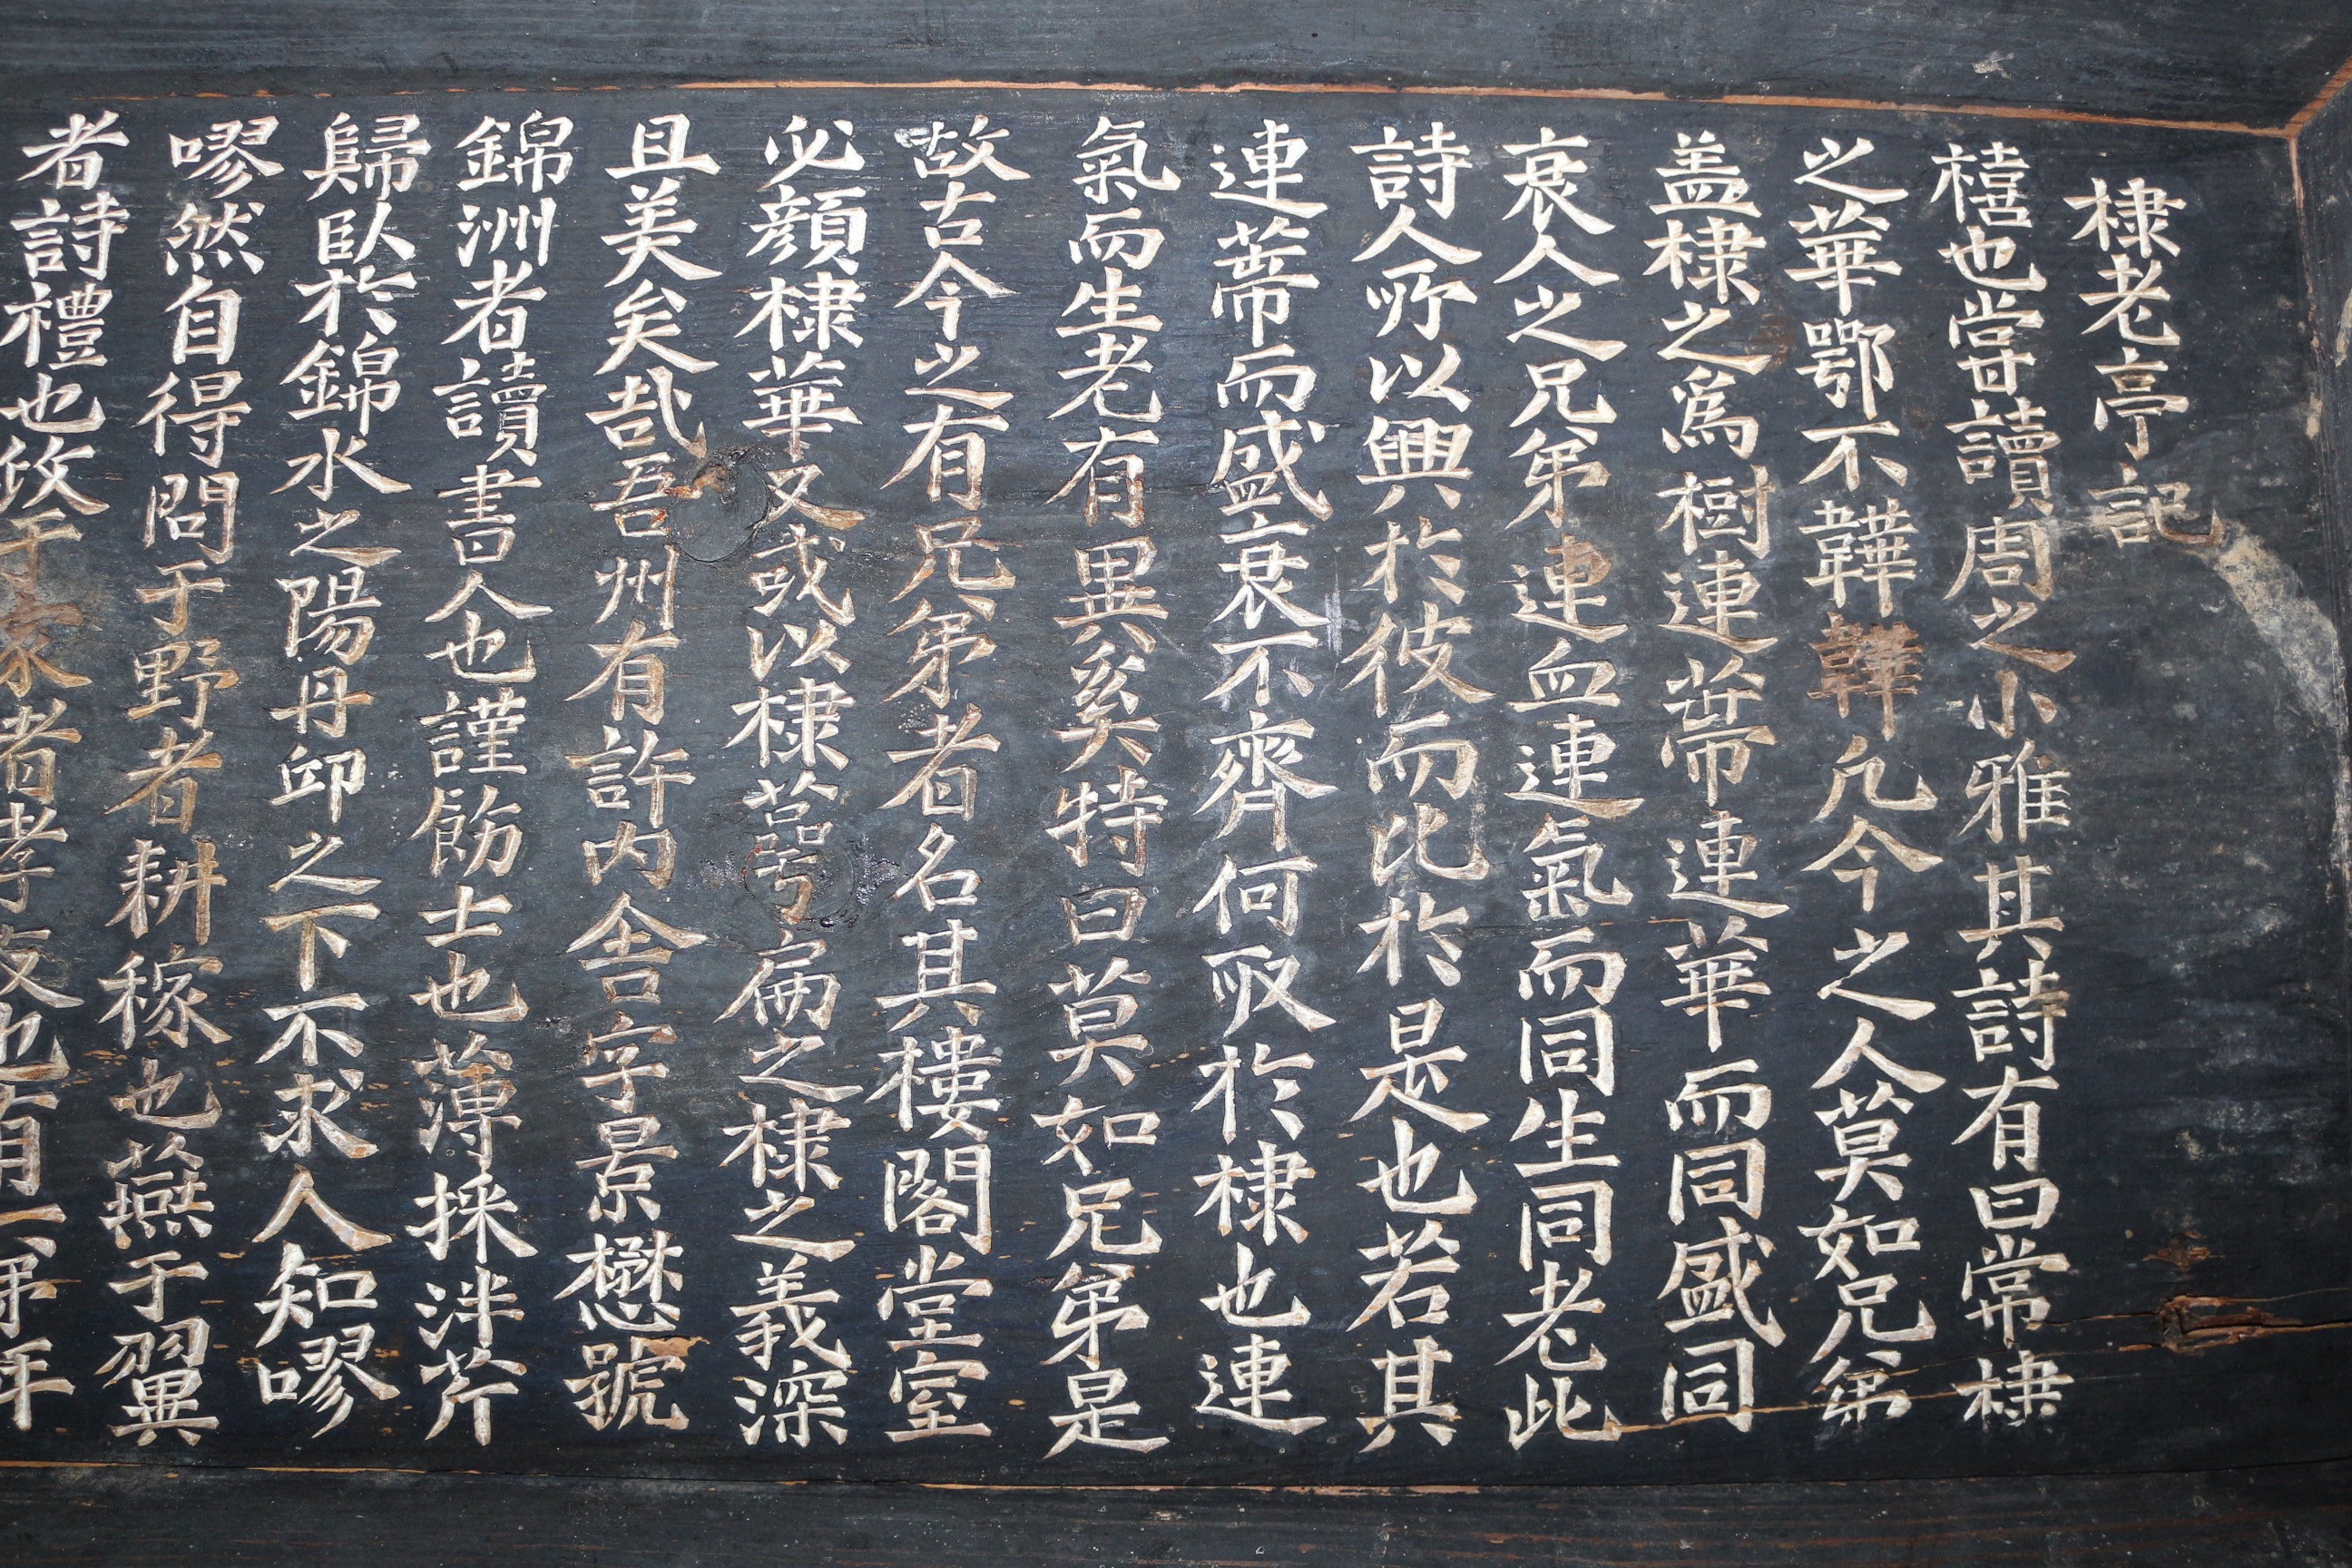 棣老亭記
橲也嘗讀周之小雅其詩有曰常棣
之華鄂不韡韡凡今之人莫如兄弟
盖棣之爲樹連蔕連華而同盛同
衰人之兄弟連血連氣而同生同老此
詩人所以興於彼而比於是也若其
連蔕而盛衰不齊何取於棣也連
氣而生老有異奚特曰莫如兄弟是
故古今之有兄弟者名其樓閣堂室
必顔棣華又或以棣萼扁之棣之義深
且美矣哉吾州有許内舍字景懋號
錦洲者讀書人也謹飭士也薄採泮芹
歸臥於錦水之陽丹邱之下不求人知嘐
嘐然自得問于野者耕稼也燕于翼
者詩禮也攸于家者孝友也有一弟年